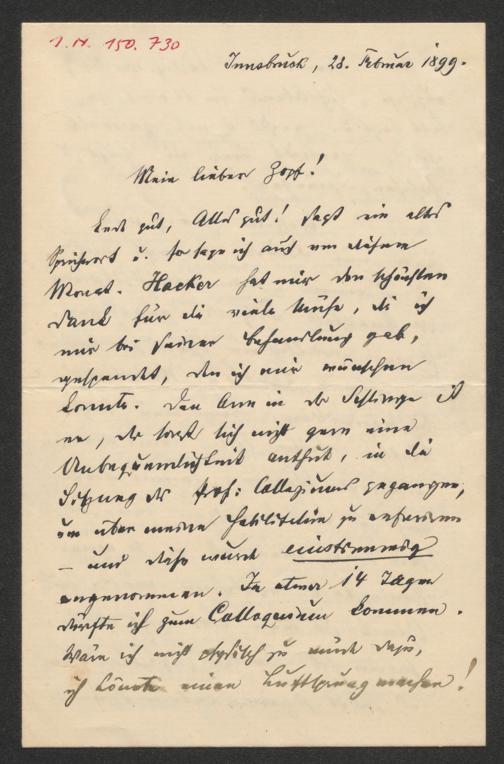 I.N. 150.730
Innsbruck, 28. Februar 1899.
Mein lieber Zopf!
Ende gut, Alles gut! sagt ein altes
Sprichwort u. so sage ich auch von diesem
Monat. Hacker hat mir den schönsten
Dank für die viele Mühe, die ich
mir bei seiner Behandlung gab,
gespendet, den ich mir wünschen
konnte. Den Arm in der Schlinge ist
er, der sonst sich nicht gern eine
Unbequemlichkeit anthut, in die
Sitzung des Prof: Collegiums gegangen,
um über meine Habilitation zu referieren
– und diese wurde einstimmig
angenommen. In etwa 14 Tagen
dürfte ich zum Colloquium kommen.
Wäre ich nicht physisch zu müde dazu,
ich könnte einen Luftsprung machen!